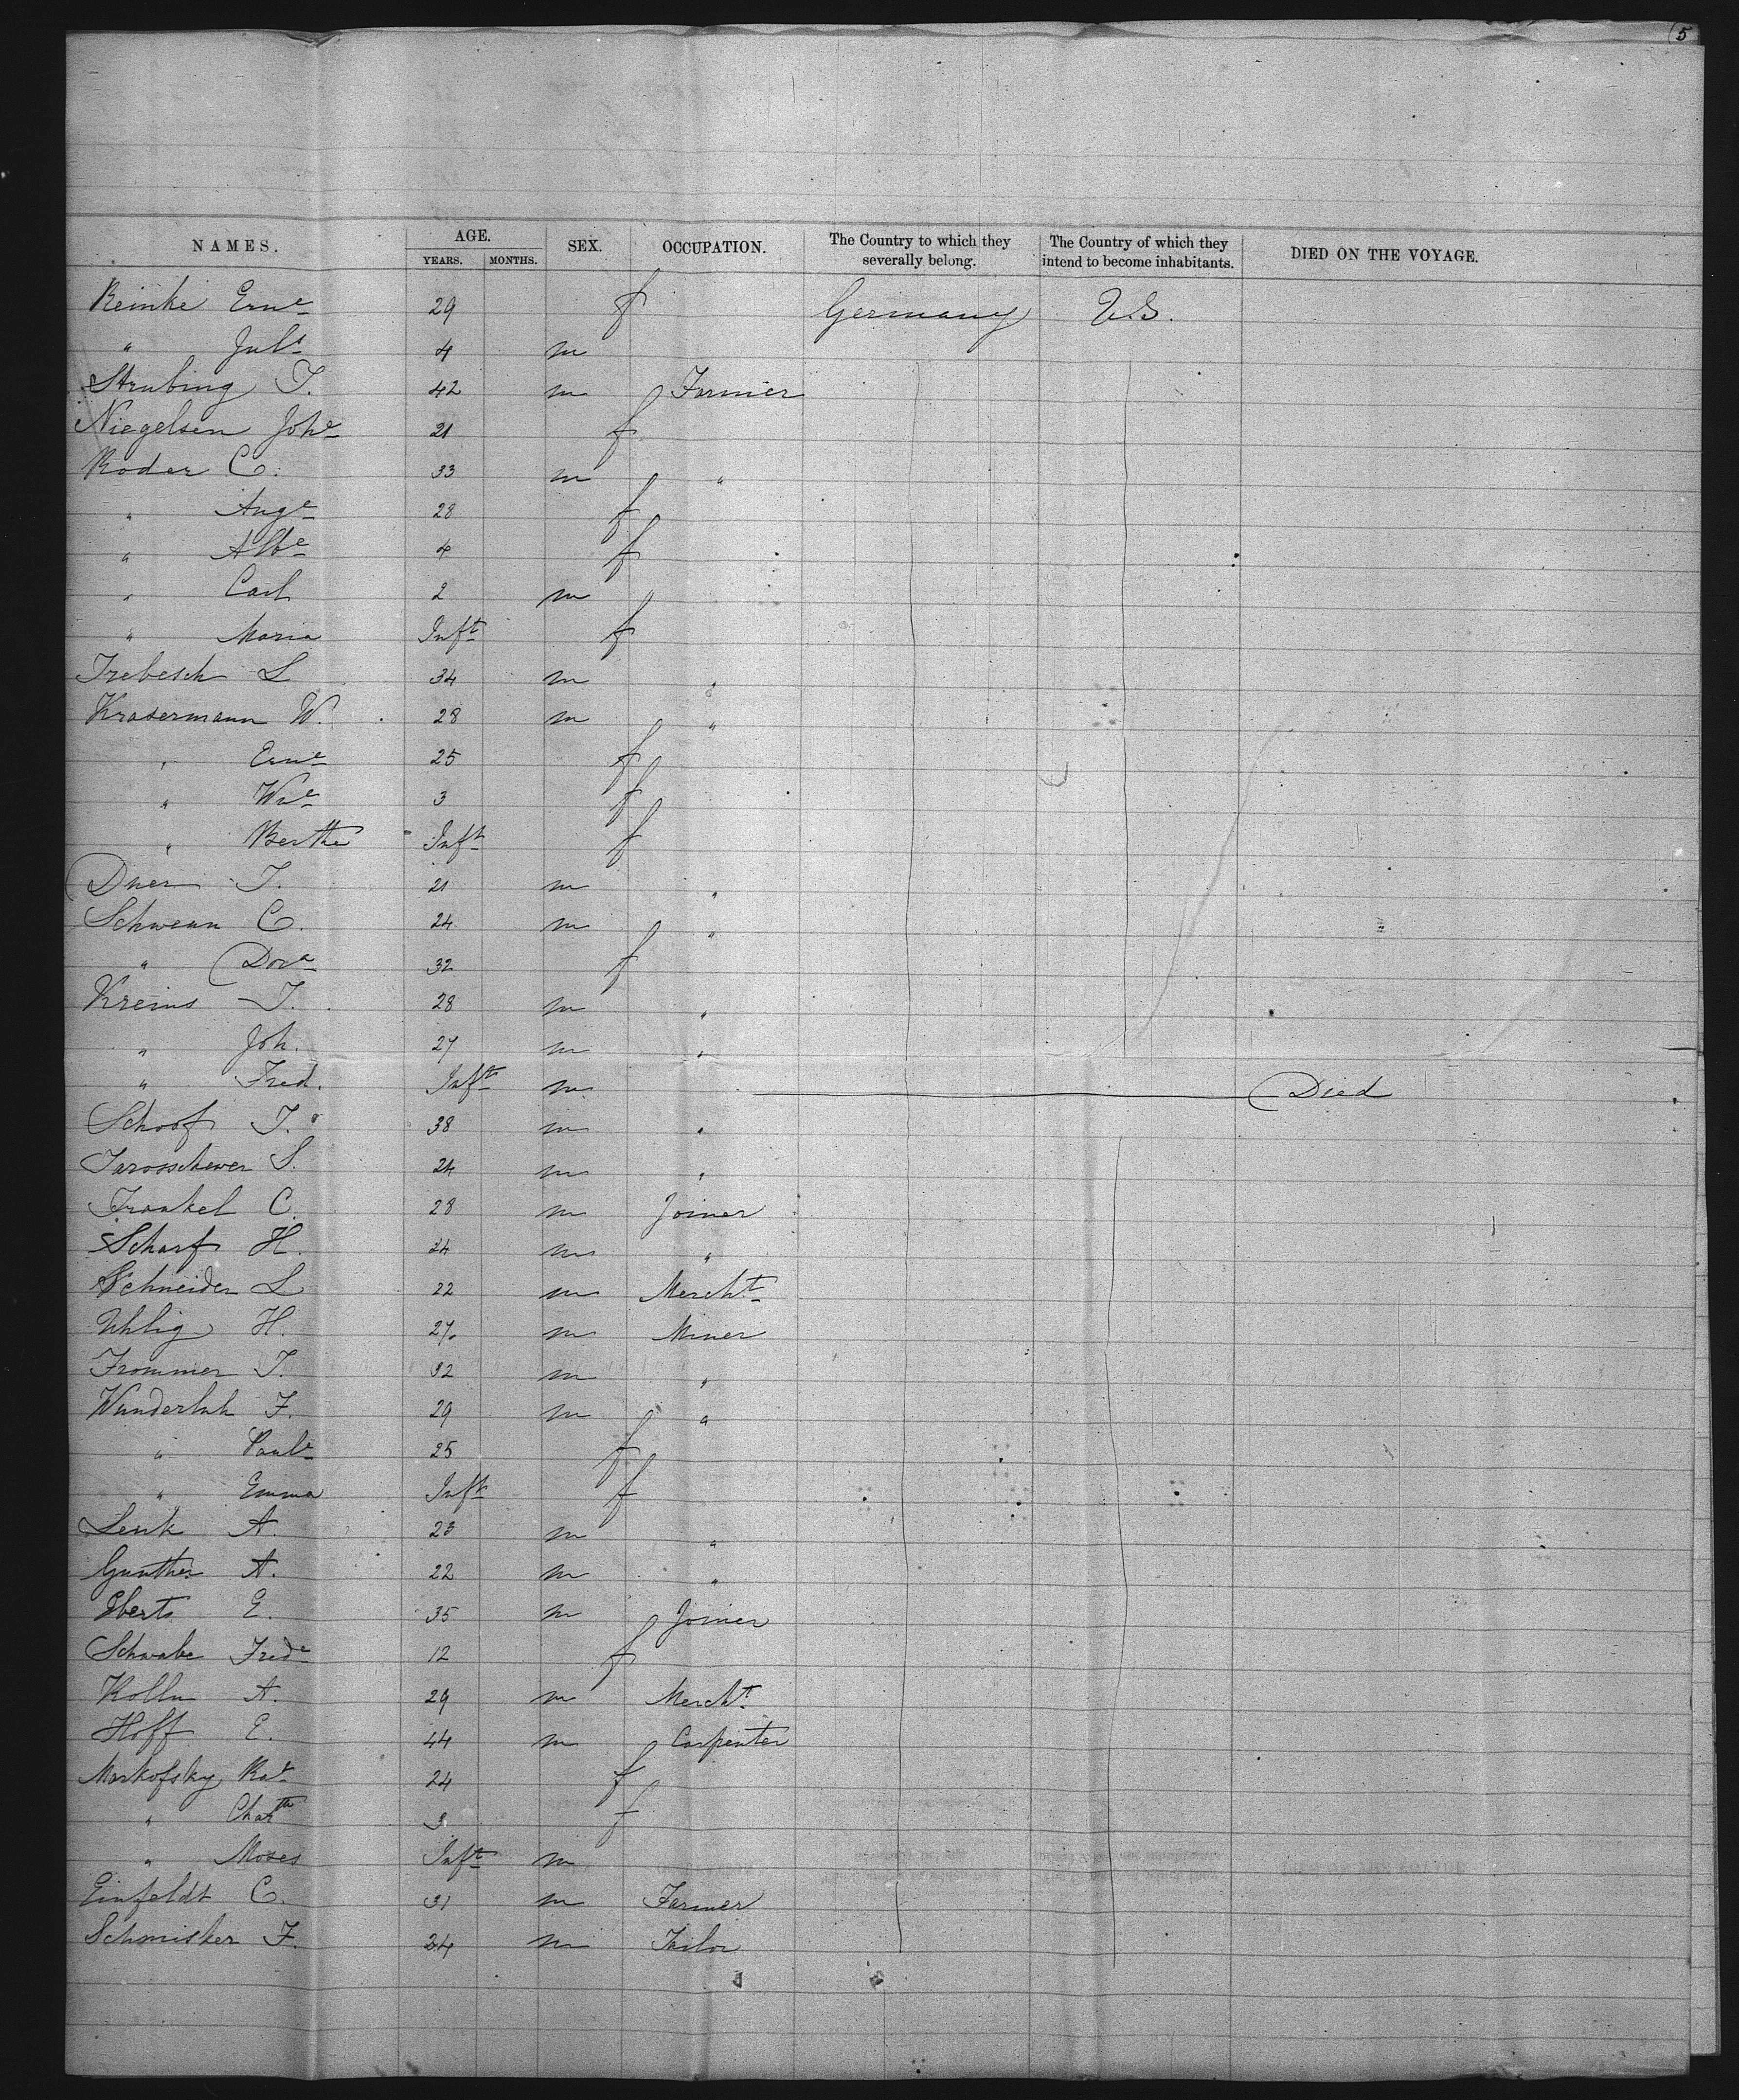 5
NAMES. AGE. SEX. OCCUPATION. The Country to which they severally belong. The Country of which they intend to become inhabitants. DIED ON THE VOYAGE.
YEARS. MONTHS.
Reinke Erne 29 f Germany U.S.
" Juls 4 m
Strubing T. 42 m Farmer
Niegelsen Johe 21 f
Roder C. 33 m "
" Auge 28 f
" Albe 4 f
" Carl 2 m
" Maria Inft f
Trebesch L 34 m "
Krasermann W. 28 m "
" Erne 25 f
" Wne 3 f
" Bertha Inft f
Duen T. 21 m "
Schwenn C. 24 m "
" Dora 32 f
Kreins J. 28 m "
" Joh. 27 m "
" Fred. Inft m Died
Schoof J. 38 m "
Jarosschewer S. 24 m "
Frankel C. 28 m Joiner
Scharf H. 24 m "
Schneider L 22 m Mercht
Uhlig H. 27 m Miner
Frommer J. 32 m "
Wunderluh F. 29 m "
" Paule 25 f
" Emma Inft f
Lenk A. 23 m "
Gunther A. 22 m "
Eberts E. 35 m Joiner
Schwabe Frede 12 f
Kolln A. 29 m Mercht
Hoff E. 44 m Carpenter
Markofsky Kat 24 f
" Chatte 3 f
" Moses Inft m
Einfeldt C. 31 m Farmer
Schmisker F. 24 m Tailor